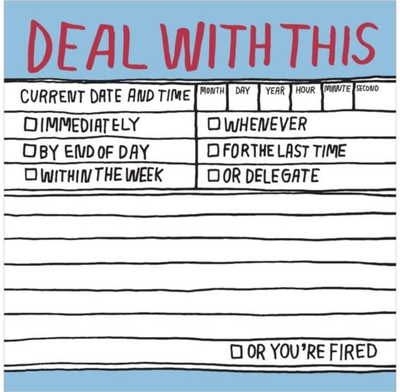 DEAL WITH THIS
CURRENT DATE AND TIME MONTH DAY YEAR HOUR MINUTE SECOND
IMMEDIATELY WHENEVER
BY END OF DAY FOR THE LAST TIME
WITHIN THE WEEK OR DELEGATE
OR YOU'RE FIRED